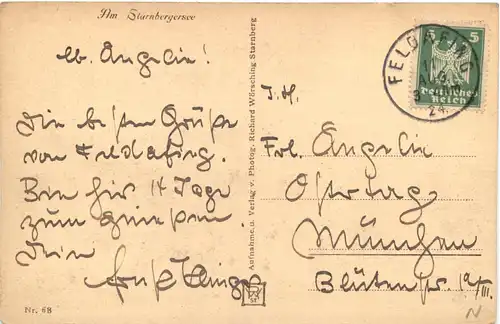 Am Starnbergersee
Lb. Angelie!
Die besten Grüße
von Feldafing.
Bin hier 14 Tage
zum
Dein
Aufnahme u. Verlag v. Photog. Richard Wörsching Starnberg
Nr. 68
FELDAFING
24.
5
Deutsches
Reich
I. H.
Frl. Angelie
Ostertag
München
Blütenstr. 19/III.
N